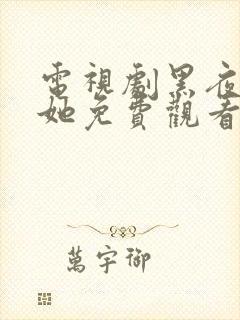 電視劇黑夜
她免費觀看
萬宇御